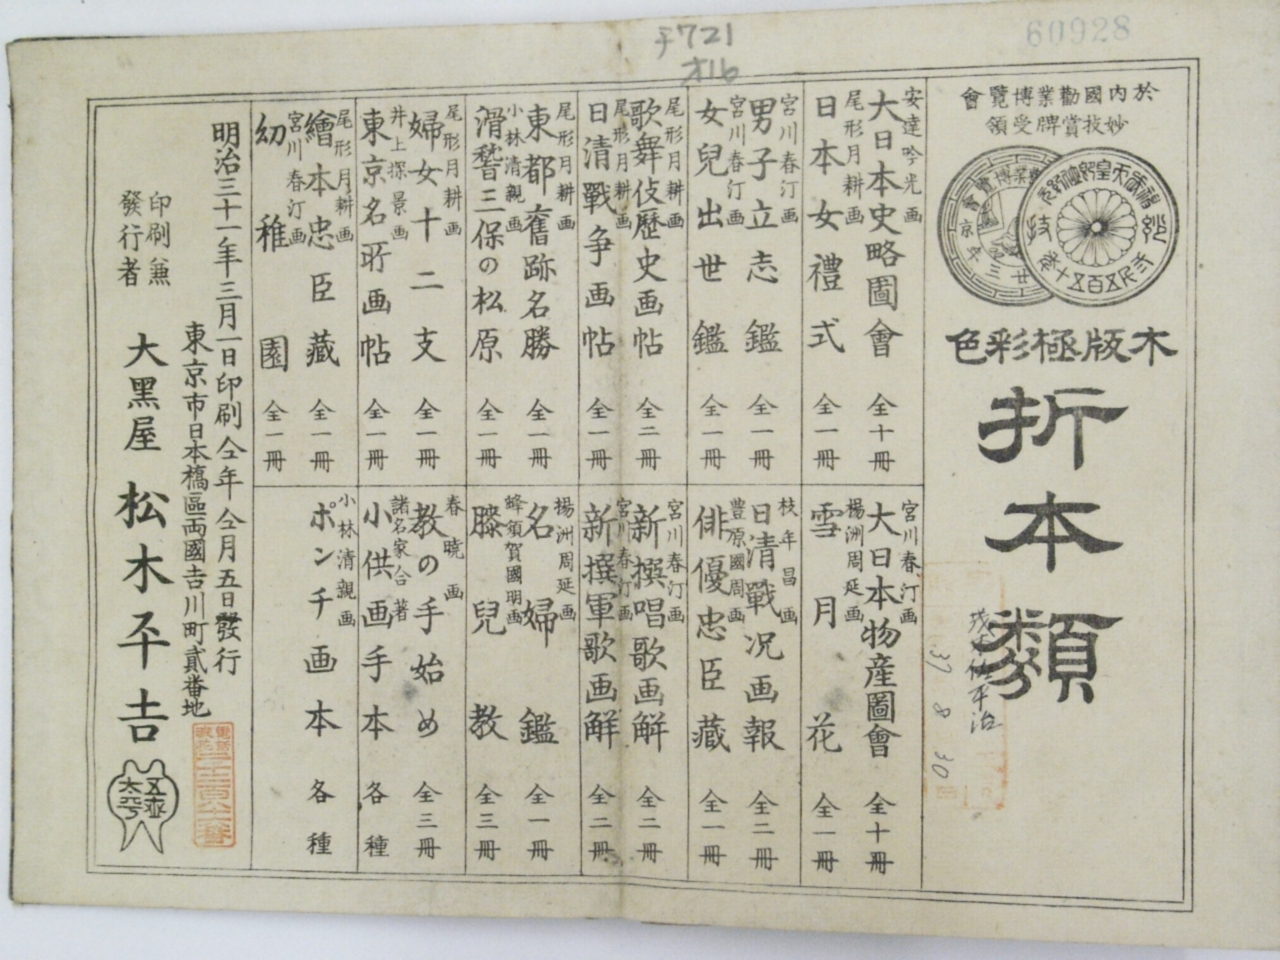 チ721
オ16
60928
於内國勸業博覧會
妙技賞牌受領
木版極彩色
折本類
37 8 30
安達吟光画
大日本史略圖會 全十冊
尾形月耕画
日本女禮式 全一冊
宮川春汀画
男子立志鑑 全一冊
宮川春汀画
女兒出世鑑 全一冊
尾形月耕画
歌舞伎歴史画帖 全二冊
尾形月耕画
日清戰争画帖 全一冊
尾形月耕画
東都舊跡名勝 全一冊
小林清親画
滑稽三保の松原 全一冊
尾形月耕画
婦女十二支 全一冊
井上探景画
東京名所画帖 全一冊
尾形月耕画
繪本忠臣藏 全一冊
宮川春汀画
幼稚園 全一冊
宮川春汀画
大日本物産圖會 全十冊
楊洲周延画
雪月花 全一冊
枝年昌画
日清戰况画報 全二冊
豊原國周画
俳優忠臣藏 全一冊
宮川春汀画
新撰唱歌画解 全二冊
宮川春汀画
新撰軍歌画解 全二冊
楊洲周延画
名婦鑑 全一冊
蜂須賀國明画
膝兒教 全三冊
春暁画
教の手始め 全三冊
諸名家合著
小供画手本 各種
小林清親画
ポンチ画本 各種
明治三十一年三月一日印刷 仝年仝月五日發行
東京市日本橋區両國吉川町貳番地
印刷兼
發行者
大黒屋 松木平吉